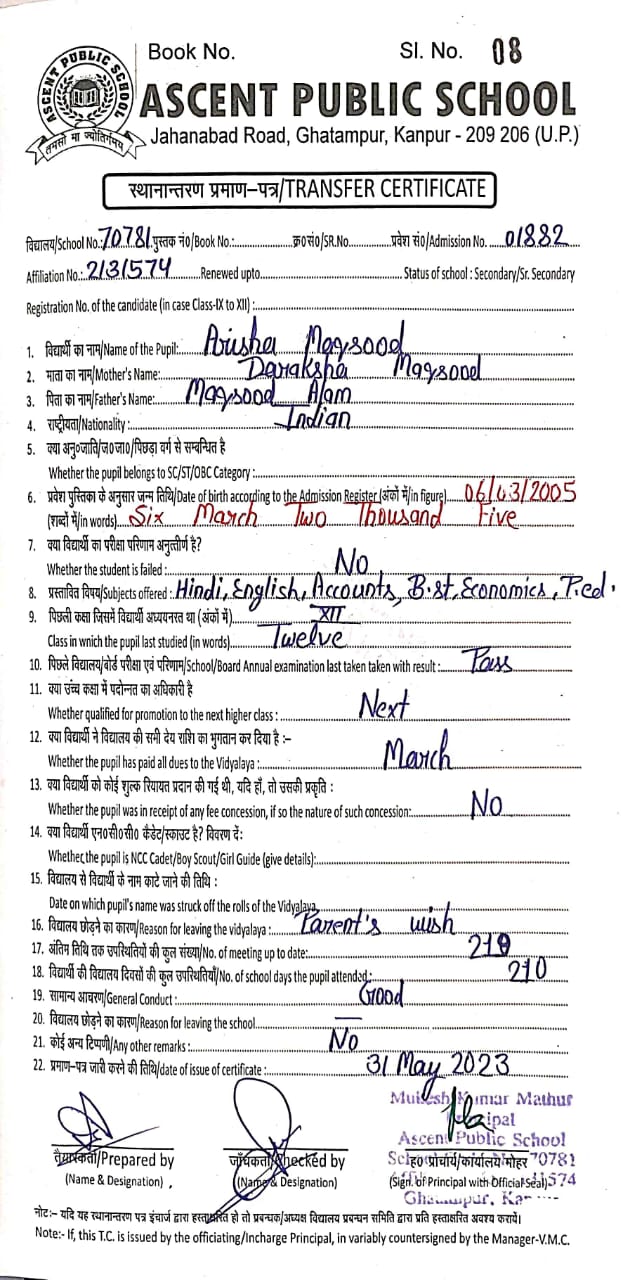 Book No. Sl. No. 08
ASCENT PUBLIC SCHOOL
तमसो मा ज्योतिर्गमय
ASCENT PUBLIC SCHOOL
Jahanabad Road, Ghatampur, Kanpur - 209 206 (U.P.)
स्थानान्तरण प्रमाण-पत्र/TRANSFER CERTIFICATE
विद्यालय/School No.: 70781 पुस्तक नं०/Book No.: क्र०सं०/SR.No. प्रवेश सं०/Admission No. 01882
Affiliation No.: 2131574 Renewed upto Status of school : Secondary/Sr. Secondary
Registration No. of the candidate (in case Class-IX to XII) :
1. विद्यार्थी का नाम/Name of the Pupil: Arisha Maqsood
2. माता का नाम/Mother's Name: Daraksha Maqsood
3. पिता का नाम/Father's Name: Maqsood Alam
4. राष्ट्रीयता/Nationality : Indian
5. क्या अनु०जाति/ज०जा०/पिछड़ा वर्ग से सम्बन्धित है
Whether the pupil belongs to SC/ST/OBC Category :
6. प्रवेश पुस्तिका के अनुसार जन्म तिथि/Date of birth according to the Admission Register (अंकों में/in figure) 06/03/2005
(शब्दों में/in words) Six March Two Thousand Five
7. क्या विद्यार्थी का परीक्षा परिणाम अनुत्तीर्ण है?
Whether the student is failed : No
8. प्रस्तावित विषय/Subjects offered : Hindi, English, Accounts, B.st, Economics, P.ed.
9. पिछली कक्षा जिसमें विद्यार्थी अध्ययनरत था (अंकों में) XII
Class in which the pupil last studied (in words) Twelve
10. पिछले विद्यालय/बोर्ड परीक्षा एवं परिणाम/School/Board Annual examination last taken taken with result : Pass
11. क्या उच्च कक्षा में पदोन्नत का अधिकारी है
Whether qualified for promotion to the next higher class : Next
12. क्या विद्यार्थी ने विद्यालय की सभी देय राशि का भुगतान कर दिया है :-
Whether the pupil has paid all dues to the Vidyalaya: March
13. क्या विद्यार्थी को कोई शुल्क रियायत प्रदान की गई थी, यदि हाँ, तो उसकी प्रकृति :
Whether the pupil was in receipt of any fee concession, if so the nature of such concession: No
14. क्या विद्यार्थी एन०सी०सी० कैडेट/स्काउट है? विवरण दें:
Whether the pupil is NCC Cadet/Boy Scout/Girl Guide (give details):
15. विद्यालय से विद्यार्थी के नाम काटे जाने की तिथि :
Date on which pupil's name was struck off the rolls of the Vidyalaya
16. विद्यालय छोड़ने का कारण/Reason for leaving the vidyalaya : Parent's wish
17. अंतिम तिथि तक उपस्थितियों की कुल संख्या/No. of meeting up to date: 219
18. विद्यार्थी की विद्यालय दिवसों की कुल उपस्थितियाँ/No. of school days the pupil attended : 210
19. सामान्य आचरण/General Conduct : Good
20. विद्यालय छोड़ने का कारण/Reason for leaving the school —
21. कोई अन्य टिप्पणी/Any other remarks : No
22. प्रमाण-पत्र जारी करने की तिथि/date of issue of certificate : 31 May 2023
Mukesh Kumar Mathur
Ascent Public School
तैयारकर्ता/Prepared by जाँचकर्ता/Checked by ह० प्रोचार्य/कार्यालय मोहर 70781
(Name & Designation) (Name & Designation) (Sign. of Principal with Official Seal) 574
नोट:- यदि यह स्थानान्तरण पत्र इंचार्ज द्वारा हस्ताक्षरित हो तो प्रबन्धक/अध्यक्ष विद्यालय प्रबन्धन समिति द्वारा प्रति हस्ताक्षरित अवश्य करायें।
Note:- If, this T.C. is issued by the officiating/Incharge Principal, in variably countersigned by the Manager-V.M.C.